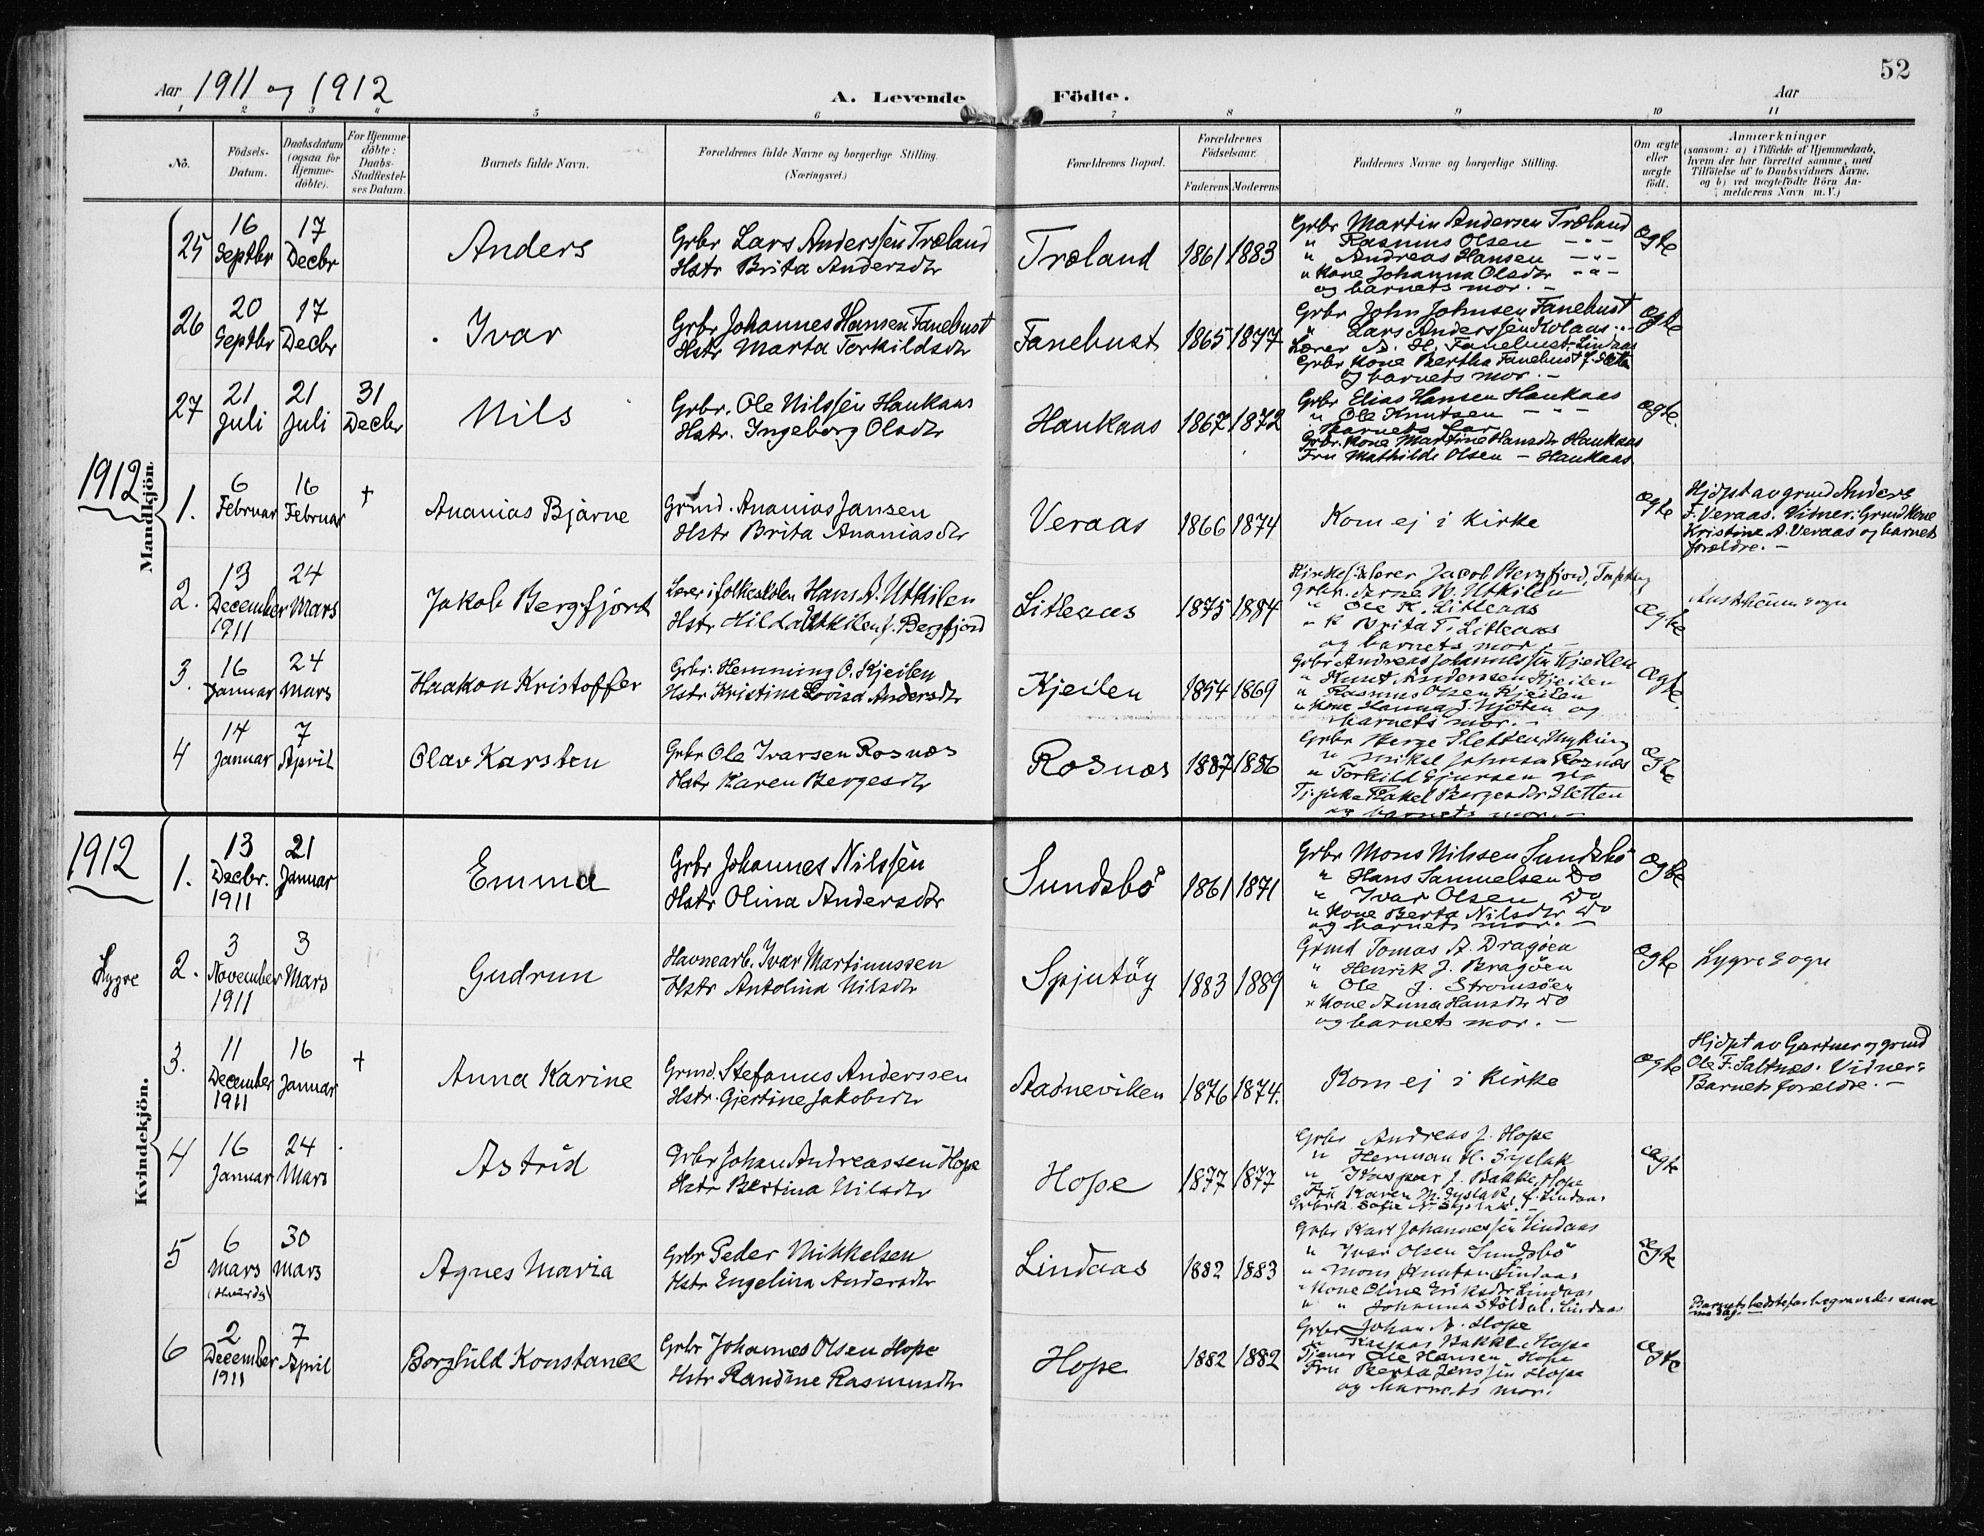 52
Aar 1911 og 1912
A. Levende Födte.
Aar
1 2 3 4 5 6 7 8 9 10 11
No.
Födsels-Datum.
Daabsdatum (ogsaa for Hjemmedöbte).
For Hjemmedöbte: Daabs-Stadfæstelses Datum.
Barnets fulde Navn.
Forældrenes fulde Navne og borgerlige Stilling. (Næringsvei.)
Forældrenes Bopæl.
Forældrenes Födselsaar.
Faderens Moderens
Faddernes Navne og borgerlige Stilling.
Om ægte eller uægte födt.
Anmærkninger
(saasom: a) i Tilfælde af Hjemmedaab, hvem der har forrettet samme, med Tilföielse af to Daabsvidners Navne, og b) ved uægtefödte Börn Anmelderens Navn m. V.)
Mandkjön.
25
16 Septbr
17 Decbr
Anders
Grbr Lars Anderssen Træland
Hstr Brita Andersdtr
Træland
1861 1883
Grbr Martin Andersen Træland
" Rasmus Olsen - " -
" Andreas Hansen - " -
" Kone Johanna Olsdtr - " -
og barnets mor. -
Ægte
26
20 Septbr
17 Decbr
Ivar
Grbr Johannes Hansen Fanebust
Hstr Marta Torkildsdtr
Fanebust
1865 1877
Grbr John Johnsen Fanebust
" Lars Anderssen
Lærer A. H. Fanebust, Lindaas
Grbr Kone Bertha Fanebust
og barnets mor. -
Ægte
27
21 Juli
21 Juli
31 Decbr
Nils
Grbr. Ole Nilssen Haukaas
Hstr. Ingeborg Olsdtr
Haukaas
1867 1872
Grbr Elias Hansen Haukaas
" Ole Knutsen - " -
Barnets far
Grbr. Kone Martine Hansdtr Haukaas
Fru Mathilde Olsen - Haukaas
Ægte.
1912
1.
6 Februar
16 Februar
+
Ananias Bjarne
Grmd. Ananias Jansen
Hstr Brita Ananiasdtr
Veraas
1866 1874
Kom ej i kirke
Ægte
Hjdpt av grmd Anders
F. Veraas. Vidner: Grmd Kone
Kristine A. Veraas og barnets
forældre. -
2.
13 December 1911
24 Mars
Jakob Bergfjort
Lærer i folkeskolen Hans A. Utkilen
Hstr Hilda Utkilen f. Bergfjord
Litleaas
1875 1884
Jacob Bergfjord,
Grbr. Arne N. Utkilen
" Ole K. Litleaas
" K Brita T. Litleaas
og barnets mor. -
Ægte
Austrheim sogn
3.
16 Januar
24 Mars
Haakon Kristoffer
Grbr. Hemming O. Kjeilen
Hstr Kristine Lovisa Andersdtr
Kjeilen
1854 1869
Grbr Andreas Johannessen Kjeilen
" Knut Andersen Kjeilen
" Rasmus Olsen Kjeilen
" Kone Hanna J. og
barnets mor. -
Ægte.
4
14 Januar
7 April
Olav Karsten
Grbr Ole Ivarsen Rosnæs
Hstr Karen Bergesdtr
Rosnæs
1887 1886
Grbr Berge Sletten, Myking
" Mikal Johnsen Rosnæs
" Torkild Gjursen do
Rakel Bergesdtr Sletten
og barnets mor. -
Ægte
1912
Kvindekjön.
1.
13 Decbr. 1911
21 Januar
Emma
Grbr Johannes Nilssen
Hstr Olina Andersdtr
Sundsbö
1861 1871
Grbr Mons Nilssen Sundsbö
" Hans Samuelsen Do
" Ivar Olsen Do
" Kone Berta Nilsdtr Do
og barnets mor. -
Ægte
Lygre
2.
3 November 1911
3 Mars
Gudrun
Havnearb. Ivar Martinussen
Hstr Antolina Nilsdtr
Spjutöy
1883 1889
Grmd Tomas A. Dragöen
" Henrik J. Dragöen
" Ole J. Strömsöen
" Kone Anna Hansdtr Do
og barnets mor. -
Ægte
Lygre sogn
3.
11 December 1911
16 Januar
+
Anna Karine
Grmd. Stefanus Anderssen
Hstr. Gjertine Jakobsdtr
Aadneviken
1876 1874.
Kom ej i kirke
Ægte
Hjdpt av Gartner og grmd
Ole F. Saltnæs. Vidner:
Barnets foreldre. -
4
16 Januar
24 Mars
Astrid
Grbr Johan Andreassen Hope
Hstr Bertina Nilsdtr
Hope
1877 1877
Grbr Andreas J. Hope
" Herman H. Syslak
" Kaspar J. Bakke, Hope
Fru Karen M. Syslak, f. Lindaas
Grbrk. Sofie N.
Ægte
5
6 Mars
30 Mars
Agnes Maria
Grbr Peder Mikkelsen
Hstr Engelina Andersdtr
Lindaas
1882 1883
Grbr Karl Johannessen Lindaas
" Ivar Olsen Sundsbö
" Mons Knutsen Lindaas
" Kone Oline Eriksdtr Lindaas
" " Johanna Stöldal, Lindaas
Ægte
Barnets bedstefar begravedes samme dag.
6
2 December 1911
7 April
Borghild Konstance
Grbr Johannes Olsen Hope
Hstr Randine Rasmusdtr
Hope
1882 1882
Grbr Johan A. Hope
" Kaspar Bakke, Hope
Tjener Ole Hansen, Hope
Fru Berta Jenssen Hope
og barnets mor.
Ægte